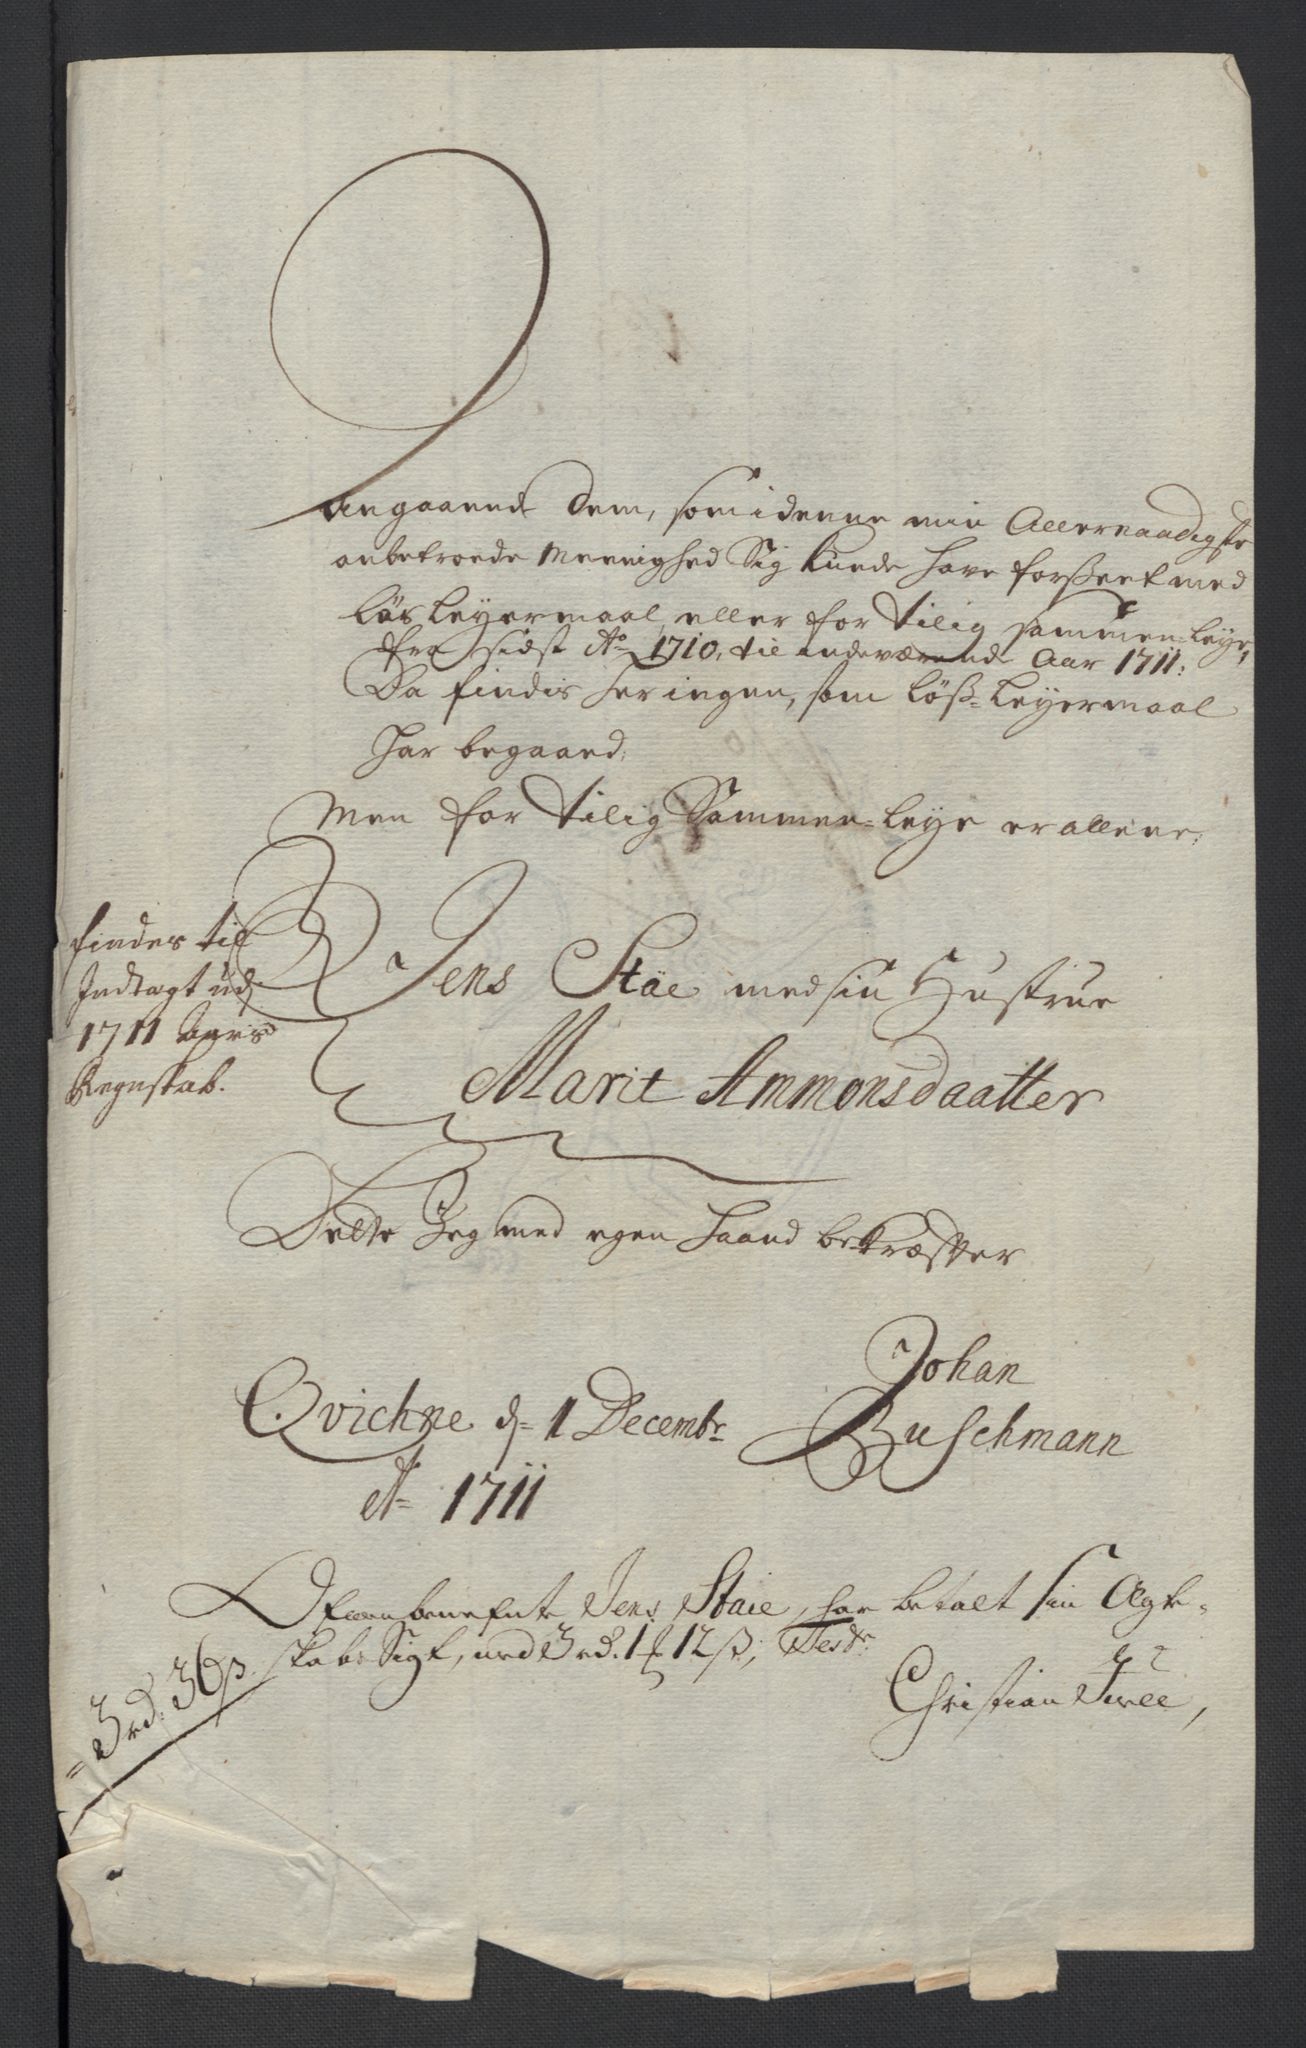 Angaaende dem, som i denne min Allernaadigste
anbetroede Menighed Sig kunde have forßeet med
løs Leyermaal, eller for tilig sammen-leye,
fra sidst Ao 1710, til indeværende Aar 1711:
Da findis her ingen, som løß-Leyermaal
har begaaed,
Men for tilig Sammen-leye er allene,
findes til
Indtægt ud
1711 Aars
Regnskab.
Jens Stäe med sin Hustrue
Marit Ammonsdaatter
Dette Jeg med egen Haand bekræffter
Qvichne d= 1 Decembr
A= 1711
Johan
Buschmann
Ofvenbenefnte Jens Staie, har betalt sin Ægte-
skabs Sigt, med 3 rd. 1 ƒ 12 ß, Test:
Christian
= 3 rd: 36 ß.